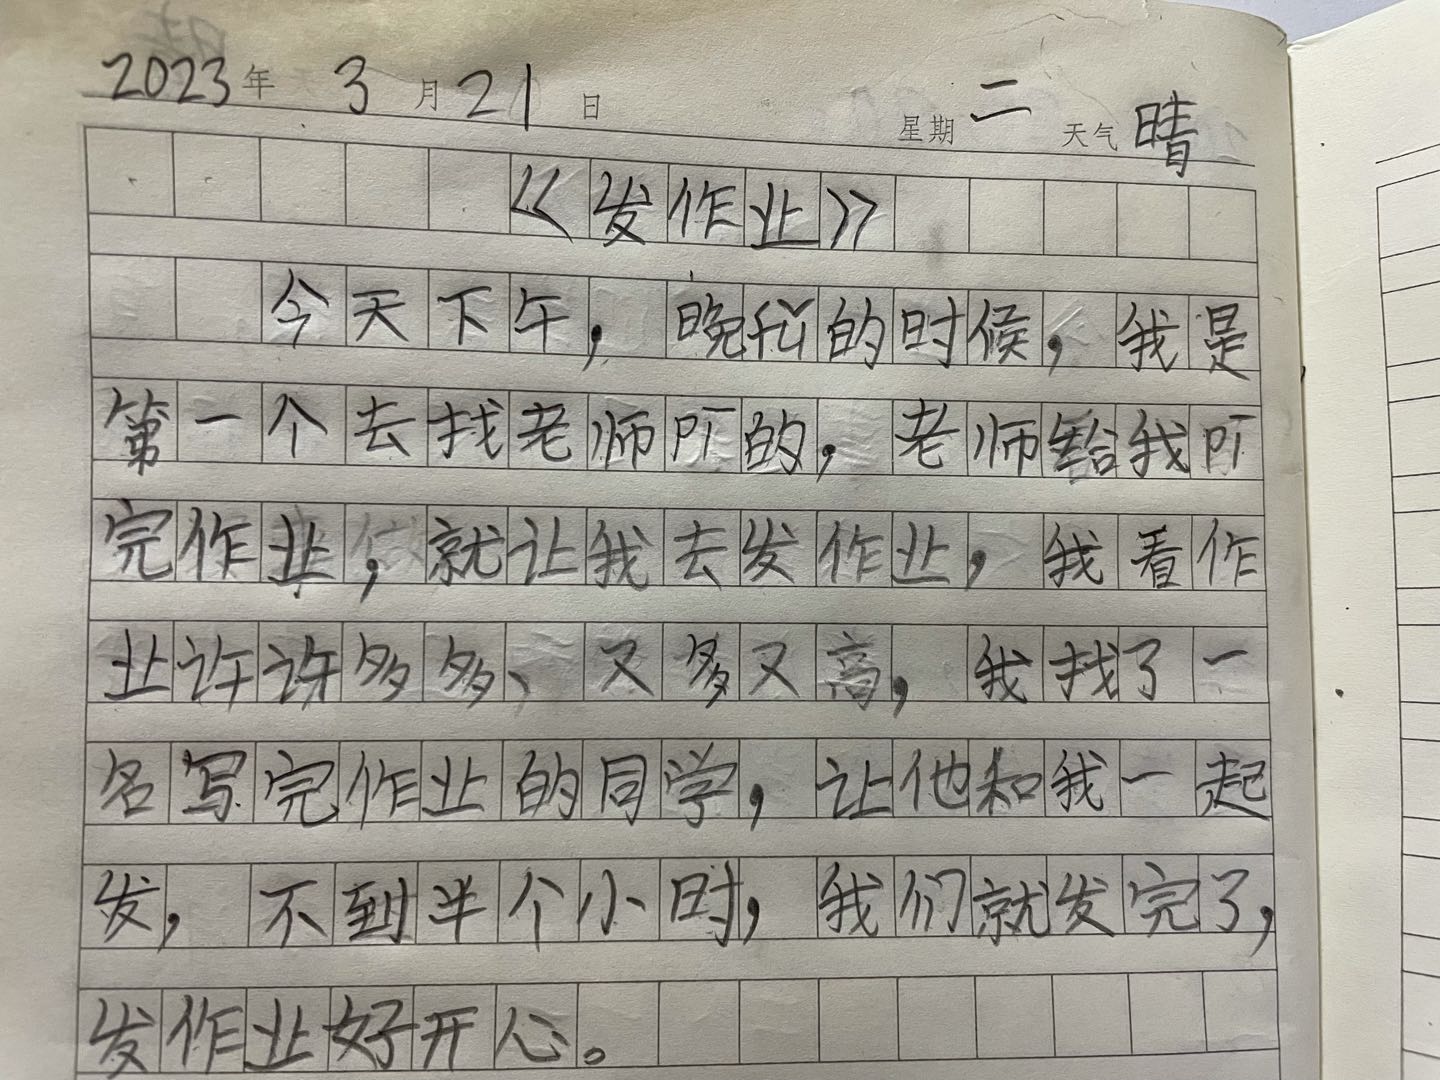 2023年 3月21日 星期二 天气晴
《发作业》
今天下午，晚托的时候，我是
第一个去找老师吖的，老师给我吖
完作业，就让我去发作业，我看作
业许许多多、又多又高，我找了一
名写完作业的同学，让他和我一起
发，不到半个小时，我们就发完了，
发作业好开心。